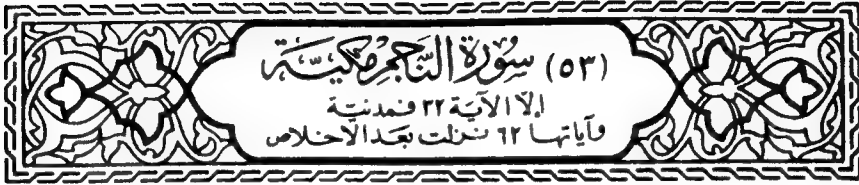 (٥٣) سورة النجم مكية
إلا الآية ٣٢ فمدنية
وآياتها ٦٢ نزلت بعد الاخلاص